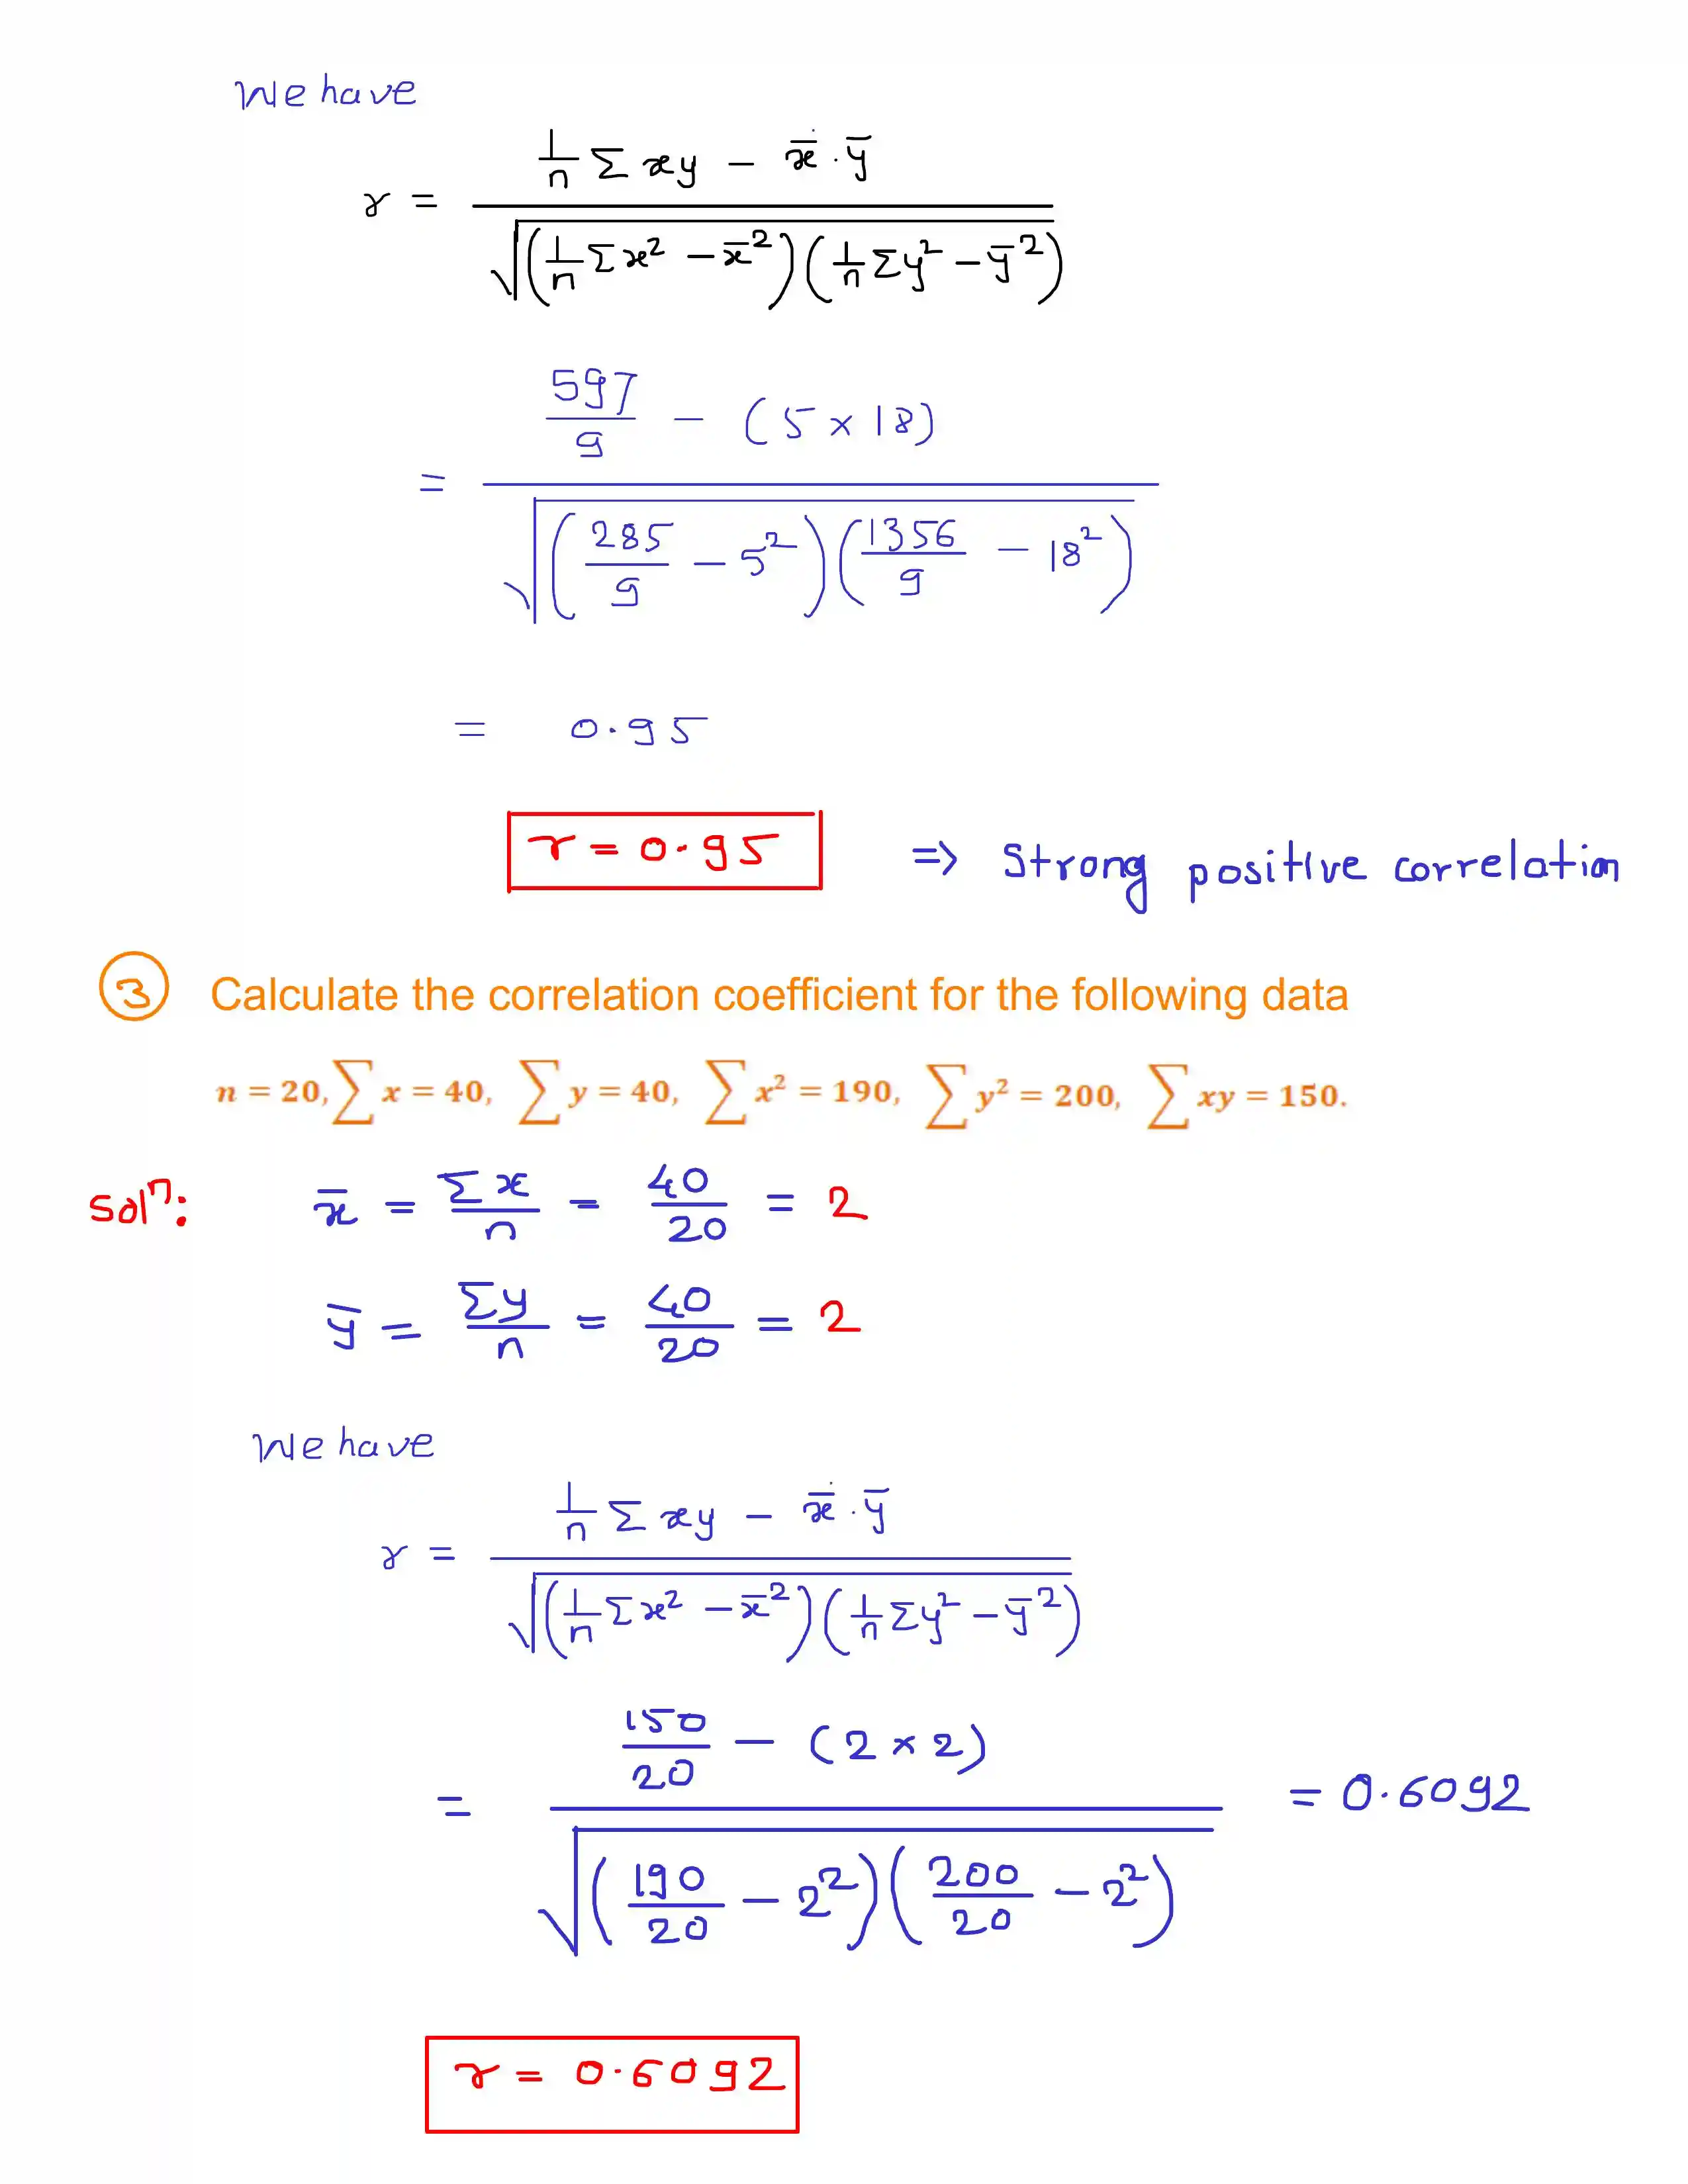 We have
r = (1/n Σxy − x̄ . ȳ) / √((1/n Σx² − x̄²)(1/n Σy² − ȳ²))
= (597/9 − (5 × 18)) / √((285/9 − 5²)(1356/9 − 18²))
= 0.95
r = 0.95 ⇒ Strong positive correlation
③ Calculate the correlation coefficient for the following data
n = 20, ∑x = 40, ∑y = 40, ∑x² = 190, ∑y² = 200, ∑xy = 150.
Solⁿ: x̄ = Σx/n = 40/20 = 2
ȳ = Σy/n = 40/20 = 2
We have
r = (1/n Σxy − x̄ . ȳ) / √((1/n Σx² − x̄²)(1/n Σy² − ȳ²))
= (150/20 − (2 × 2)) / √((190/20 − 2²)(200/20 − 2²)) = 0.6092
r = 0.6092